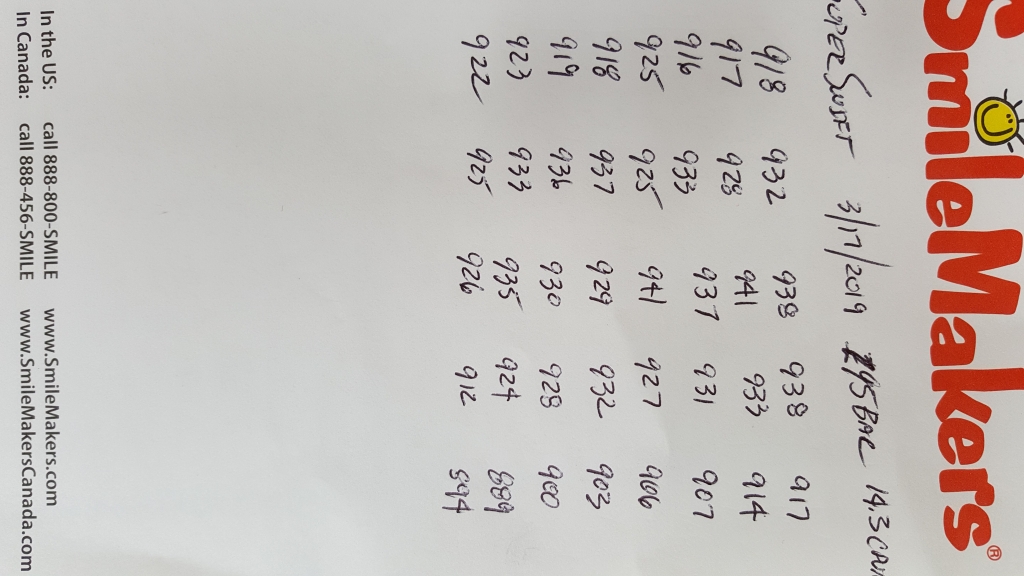 SmileMakers®
SUPER SWIFT 3/17/2019 195BAR 14.3
918 932 938 938 917
917 928 941 933 914
916 933 937 931 907
925 925 941 927 906
918 937 929 932 903
919 936 930 928 900
923 933 935 924 889
922 925 926 912 894
In the US: call 888-800-SMILE www.SmileMakers.com
In Canada: call 888-456-SMILE www.SmileMakersCanada.com